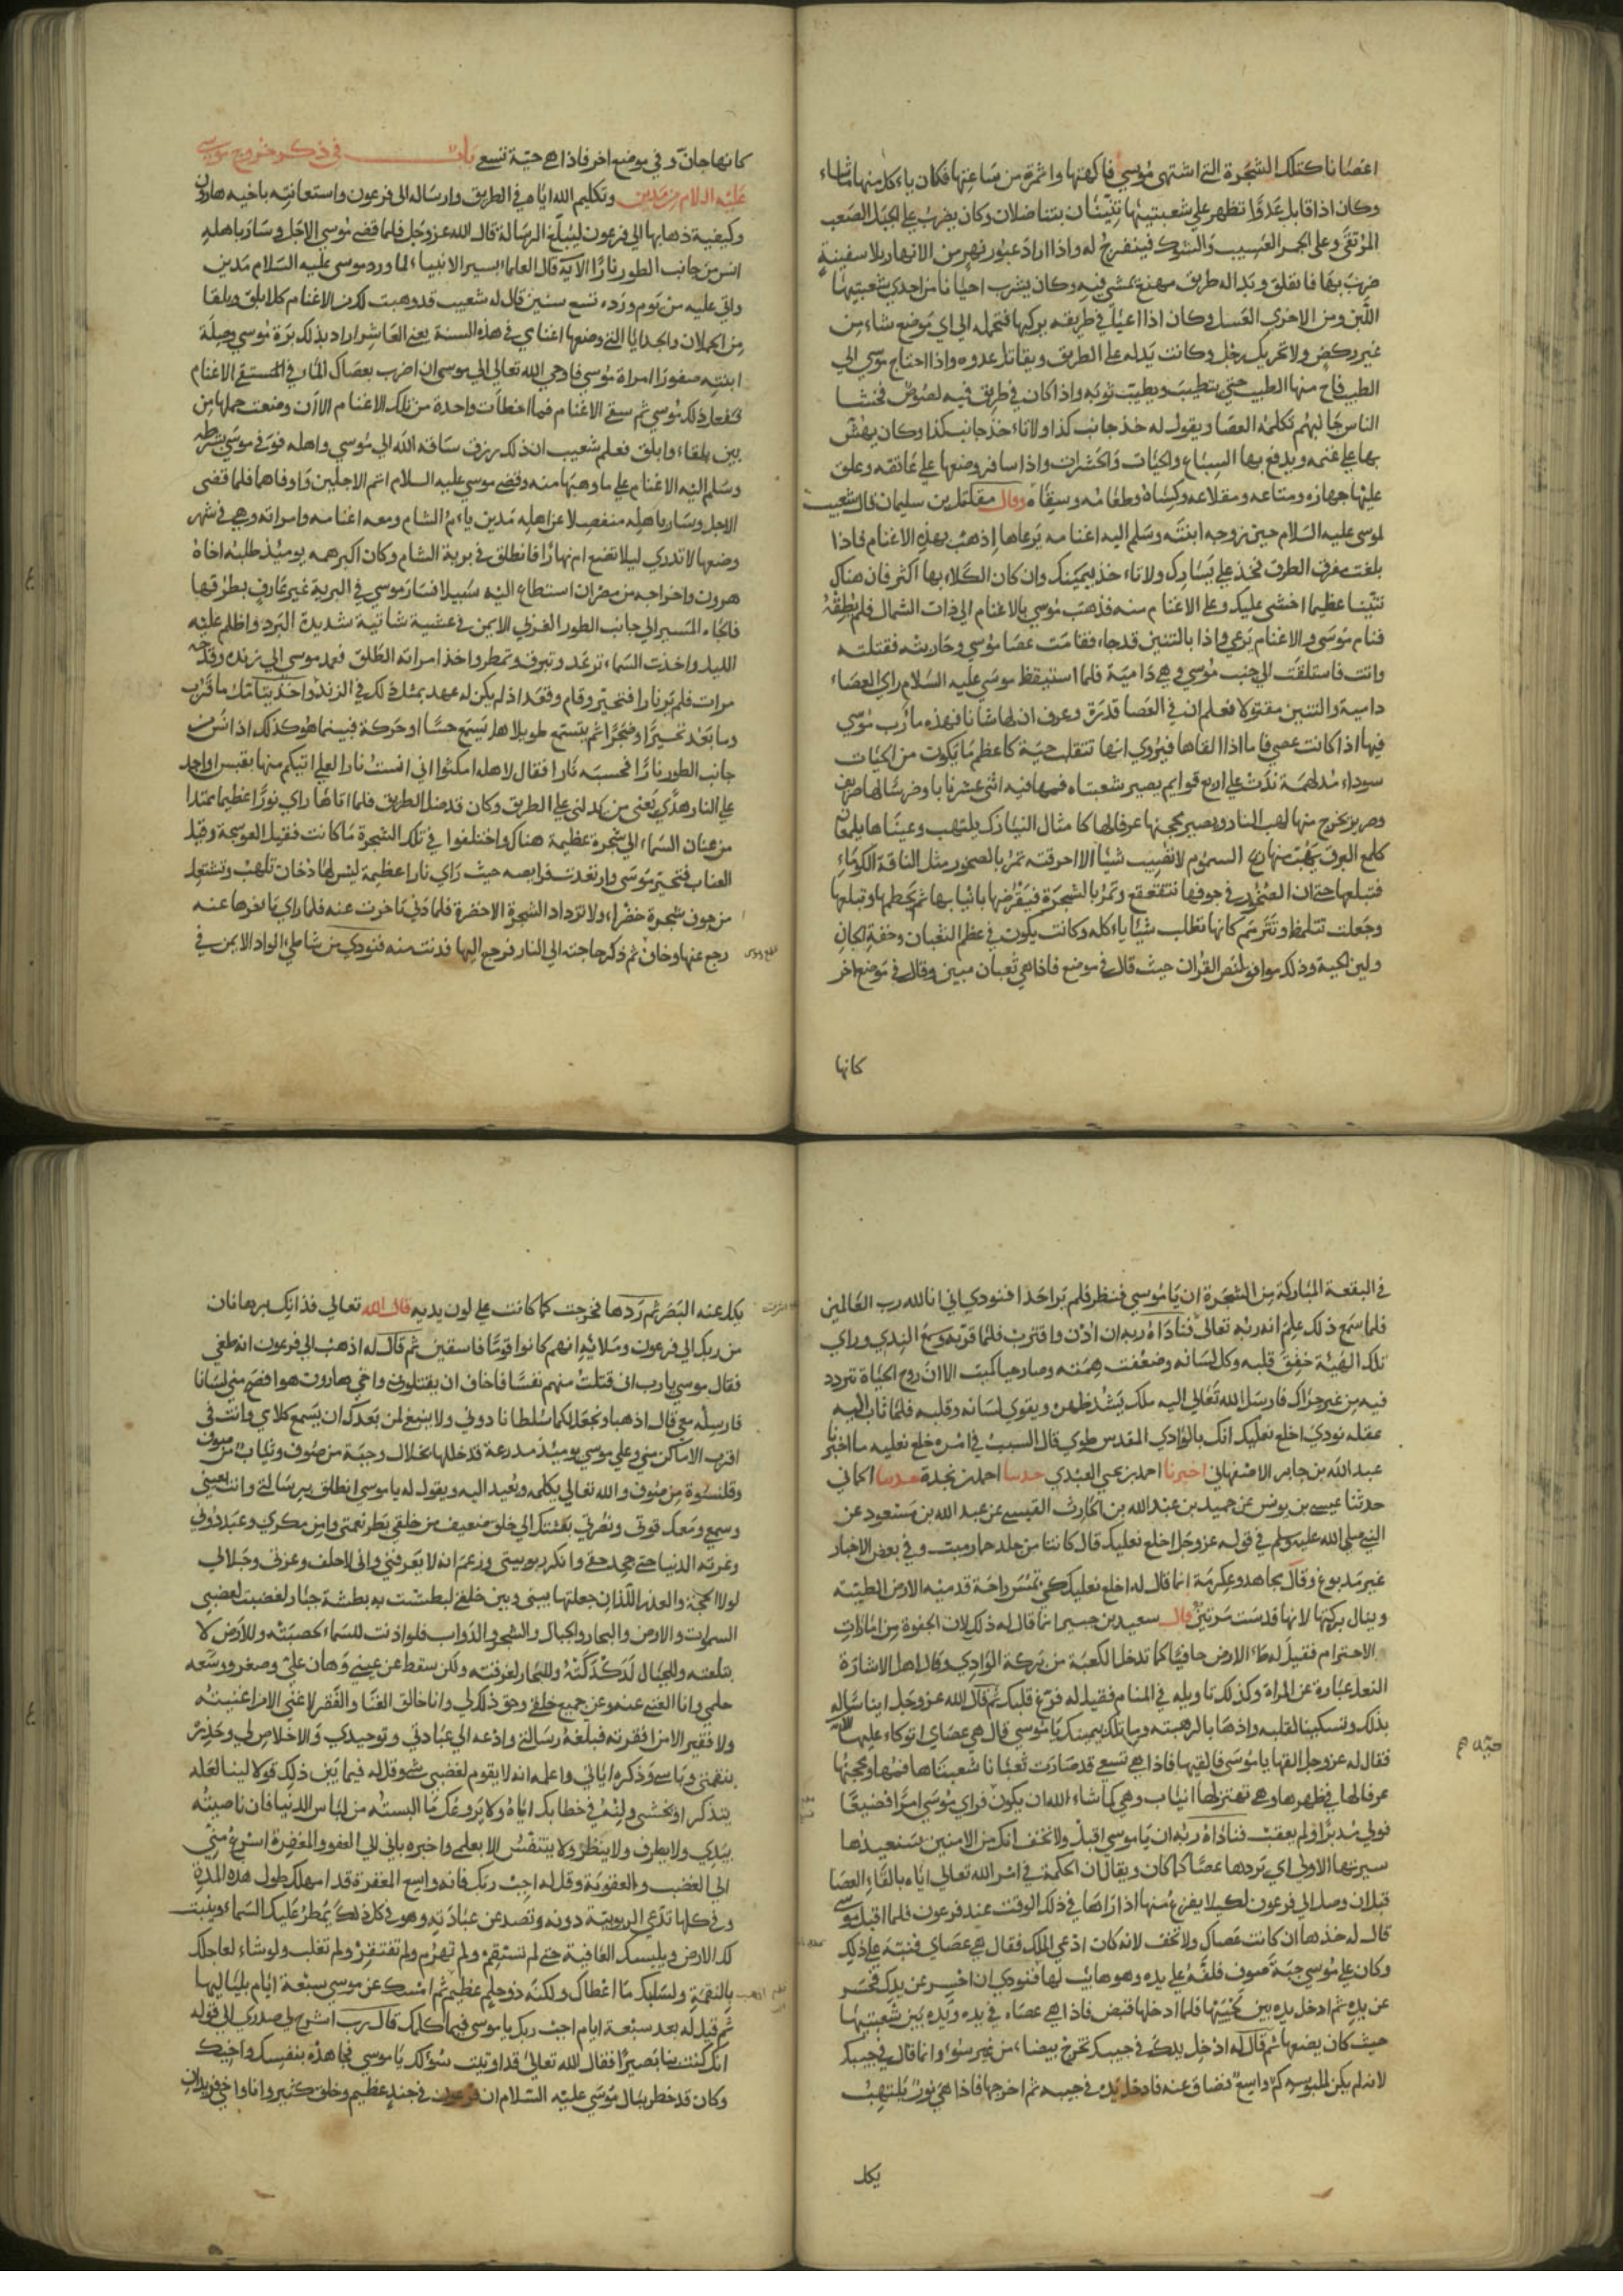 اغصانا كتلك الشجرة التي اشتهى موسي فاكهتها واثمرة من ساعتها فكان ياءكل منها ماشاء
وكان اذا قابل عدوا تظهر علي شعبتيها تنينان يتناضلان وكان يضرب علي الجبل الصعب
المرتقى وعلى الحجر العسيب والشوك فينفرج له واذا اراد عبور نهر من الانهار بلا سفينة
ضرب بها فانفلق وبدا له طريق مهنع يمشي فيه وكان يشرب احيانا من احدي شعبتيها
اللبن ومن الاخري العسل وكان اذا اعيا في طريقه يركبها فتحمله الي اي موضع شاء من
غير ركض ولا تحريك رجل وكانت يدله على الطريق ويقاتل عدوه واذا احتاج موسي الي
الطيب فاح منها الطيب حتي يتطيب ويطيب ثوبه واذا كان في طريق فيه لصوص تخشا
الناس جانبهم تكلمه العصا ويقول له خذ جانب كذا ولاتاء خذ جانب كذا وكان يهش
بها علي غنمه ويدفع بها السباع والحيات والحشرات واذا سافر وضعها علي عاتقه وعلق
عليها جهازه ومتاعه ومقلاعه وكساه وطعامه وسقاه وقال مقاتل بن سليمان قال شعيب
لموسى عليه السلام حين زوجه ابنته وسلم اليه اغنامه يرعاها اذهب بهذه الاغنام فاذا
بلغت مفرق الطرق فخذ علي يسارك ولاتاء خذ ليمينك وان كان الكلاء بها اكثر فان هناك
تنينا عظيما اخشى عليك وعلي الاغنام منه فذهب موسي بالاغنام الي ذات الشمال فلم يطقه
فنام موسى والاغنام يرعي واذا بالتنين قد جاء فقامت عصا موسي وحاربته فقتلته
واتت فاستلقت الي جنب موسي وهي دامية فلما استيقظ موسي عليه السلام راي العصاء
دامية والتنين مقتولا فعلم ان في العصا قدرة وعرف ان لها شانا فهذه مارب موسي
فيها اذا كانت عصي فاما اذا القاها فيروي انها تنقلب حية كاعظم مايكون من الحيات
سوداء مدلهمة تدب على اربع قوايم يصير شعبتاه فمها فيه اثني عشر نابا وضرسا لها صريف
وصرير يخرج منها لهب النار ويصير محجنها عرفا لها كامثال النيازك يلتهب وعيناها يلمعان
كلمع البرق يهب منها ريح السموم لا تصيب شيئا الا احرقته تمر بالصخور مثل الناقة الكوماء
فتبلعها حتى ان الصخور في جوفها تتقعقع وتمر بالشجرة فيقرضها بانيابها ثم يحطمها وتبلعها
وجعلت تتلمظ وتترمم كانها تطلب شيئا ياءكله وكانت يكون في عظم الثعبان وخفة الجان
ولين الحية وذلك موافق لنص القران حيث قال في موضع فاذا هي ثعبان مبين وقال في موضع اخر
كانها
كانها جان وفي موضع اخر فاذا هي حية تسعى باب في ذكر خروج موسي
عليه السلام من مدين وتكليم الله اياه في الطريق وارساله الى فرعون واستعانته باخيه هارون
وكيفية ذهابها الي فرعون ليبلغ الرسالة قال الله عز وجل فلما قضي موسي الاجل وسار باهله
انس من جانب الطور نارا الاية قال العلماء بسير الانبياء لما ورد موسى عليه السلام مدين
واتي عليه من يوم ورده تسع سنين قال له شعيب قد وهبت لك من الاغنام كل ابلق وبلقا
من الحملان والجدايا التي وضعها اغنامي في هذه السنة يعني العاشر اراد بذلك برة موسي وصلة
ابنته صفورا امراة موسي فاوحي الله تعالي الي موسى ان اضرب بعصاك الماء في المستقي الاغنام
ففعل ذلك موسي ثم سقي الاغنام فما اخطات واحدة من تلك الاغنام الا ان وضعت حملها من
بين بلقاء وابلق فعلم شعيب ان ذلك رزق ساقه الله الي موسي واهله فوفى موسي بشرطه
وسلم اليه الاغنام علي ما وهبها منه وقضي موسي عليه السلام اتم الاجلين واوفاهما فلما قضى
الاجل وسار باهله منفصلا عن اهله مدين ياءم الشام ومعه اغنامه وامراته وهي في شهر
وضعها لا تدري ليلا تضع ام نهارا فانطلق في برية الشام وكان اكبر همه يوميذ طلبه اخاه
هرون واخراجه من مصر ان استطاع اليه سبيلا فسار موسي في البرية غير عارف بطرقها
فالجاء المسير الي جانب الطور الغربي الايمن في عشية شاتية شديدة البرد واظلم عليه
الليل واخذت السماء ترعد وتبرق وتمطر واخذ امراته الطلق فعمد موسي الي زنده وقدحه
مرات فلم ير نارا فتحير وقام وقعد اذ لم يكن له عهد بمثل ذلك في الزند واخذ يتامل ما قرب
وما بعد تحيرا وضجرا ثم يتسمع طويلا هل يسمع حسا او حركة فبينما هو كذلك اذ انس من
جانب الطور نارا فحسبه نارا فقال لاهله امكثوا اني انست نارا لعلي اتيكم منها بقبس او اجد
علي النار هدي يعني من يدلني علي الطريق وكان قد ضل الطريق فلما اتاها راي نورا عظيما ممتدا
من عنان السماء الي شجرة عظيمة هناك واختلفوا في تلك الشجرة ما كانت فقيل العوسجة وقيل
العناب فتحير موسي وارتعدت فرايصه حيث راي نارا عظيمة ليس لها دخان تلهب وتشتعل
من جوف شجرة خضراء ولا تزداد الشجرة الا خضرة فلما دني تاخرت عنه فلما راي تاخرها عنه
رجع عنها وخاف ثم ذكر حاجته الي النار فرجع اليها فدنت منه فنودي من شاطئ الواد الايمن في
في البقعة المباركة من الشجرة ان يا موسي فنظر فلم ير احدا فنودي اني انا الله رب العالمين
فلما سمع ذلك علم انه ربه تعالى فناداه ربه ان ادن واقترب فلما قرب وسمع الندي وراي
تلك الهيبة خفق قلبه وكل لسانه وضعفت همته وصار حيا كميت الا ان روح الحياة تتردد
فيه من غير حراك فارسل الله تعالي اليه ملك يشد ظهره ويقوي لسانه وقلبه فلما ثاب اليه
عقله نودي اخلع نعليك انك بالوادي المقدس طوي قال السبب في امره خلع نعليه ما اخبرنا
عبد الله بن جابر الاصفهاني اخبرنا احمد بن يحي العبدي حدسا احمد بن نجدة حدسا الحماني
حدثنا عيسى بن يونس عن حميد بن عبد الله بن الحارث القيسي عن عبد الله بن مسعود عن
النبي صلي الله عليه وسلم في قوله عز وجل اخلع نعليك قال كانتا من جلد حمار ميت وفي بعض الاخبار
غير مدبوغ وقال مجاهد وعكرمة انما قال له اخلع نعليك كي تمس راحة قدميه الارض الطيبة
وينال بركتها لانها قدست مرتين قال سعيد بن جبير انما قال له ذلك لان الحفوة من امارات
الاحترام فقيل له طاء الارض حافيا كما تدخل الكعبة من بركة الوادي وقال اهل الاشارة
النعل عبارة عن المراة وكذلك تاويله في المنام فقيل له فرغ قلبك ثم قال الله عز وجل ايناسا له
بذلك وتسكينا لقلبه واذهابا لرهبته وما تلك بيمينك يا موسي قال هي عصاي اتوكاء عليها
فقال له عز وجل القها يا موسي فالقيها فاذا هي تسعي قد صارت ثعبانا شعبتاها فمها ومحجنها
عرفا لها في ظهرها وهي تهتز لها انياب وهي كما شاء الله ان يكون فراي موسي امرا فضيعا
فولي مدبرا ولم يعقب فناداه ربه ان يا موسي اقبل ولا تخف انك من الامنين سنعيدها
سيرتها الاولي اي نردها عصا كما كان ويقال ان الحكمة في امر الله تعالي اياه بالقاء العصا
قبل ان وصل الي فرعون لكيلا يفزع منها اذا راها في ذلك الوقت عند فرعون فلما اقبل موسى
قال له خذها ان كانت عصاك ولا تخف لانه كان ادعي الملك فقال هي عصاي فنبه علي ذلك
وكان علي موسي جبة صوف فلفه علي يده وهو هايب لها فنودي ان احسر عن يدك فحسر
عن يده ثم ادخل يده بين لحييها فلما ادخلها قبض فاذا هي عصاه في يده ويده بين شعبتيها
حيث كان يضعها ثم قال له ادخل يدك في جيبك تخرج بيضاء من غير سوء وانما قال في جيبك
لانه لم يكن لملبوسه كم واسع فضاق عنه فادخل يده في جيبه ثم اخرجها فاذا هي نور يلتهب
يكل
يكل عنه البصر ثم ردها فخرجت كما كانت علي لون يديه قال الله تعالي فذانك برهانان
من ربك الي فرعون وملائيه انهم كانوا قوما فاسقين ثم قال له اذهب الي فرعون انه طغي
فقال موسي يارب اني قتلت منهم نفسا فاخاف ان يقتلون واخي هارون هو افصح مني لسانا
فارسله معي قال اذهبا ونجعل لكما سلطانا دوني ولا ينبغ لمن بعدك ان يسمع كلامي وانت في
اقرب الاماكن مني وعلي موسي يوميذ مدرعة قد خللها بخلال وجبة من صوف وثياب من صوف
وقلنسوة من صوف والله تعالي يكلمه ويعيد اليه ويقول له ياموسي انطلق برسالتي وانت بعيني
وسمعي ومعك قوتي ونصرتي بعثتك الي خلق ضعيف من خلقي بطر نعمتي وامن مكري وعبد دوني
وغرته الدنيا حتي جحد حقي وانكر ربوبيتي وزعم انه لا يعرفني واني لاحلف وعزتي وجلالي
لولا الحجة والعذر اللذان جعلتها بيني وبين خلقي لبطشت به بطشة جبار لغضبت لغضبي
السموات والارض والبحار والجبال والشجر والدواب فلو اذنت للسماء لحصبته وللارض لا
بتلعته وللجبال لدكدكته وللبحار لغرقته ولكن سقط عن عيني وهان علي وصغر ووسعه
حلمي وانا الغني عنه وعن جميع خلقي وحق ذلك لي وانا خالق الغنا والفقر لا غني الا من اغنيته
ولا فقير الا من افقرته فبلغه رسالتي وادعه الي عبادتي وتوحيدي والاخلاص لي وحذره
بنقمتي وباسي وذكره اياتي واعلمه انه لا يقوم لغضبي شي وقل له فيما بين ذلك قولا لينا لعله
يتذكر او يخشى ولنه في خطابك اياه ولا يروعك ما البسته من لباس الدنيا فان ناصيته
بيدي ولا يطرف ولا ينظر ولا يتنفس الا بعلمي واخبره باني الي العفو والمغفرة اسرع مني
الي الغضب والعقوبة وقل له اجب ربك فانه واسع المغفرة قد امهلك طول هذه المدة
وفي كلها تدعي الربوبية دونه وتصد عن عبادته وهو في كل ذلك يمطر عليك السماء وينبت
لك الارض ويلبسك العافية حتي لم تسقم ولم تهرم ولم تفتقر ولم تغلب ولو شاء لعاجلك
بالنقمة ولسلبك ما اعطاك ولكنه ذو حلم عظيم ثم امسك عن موسي سبعة ايام بلياليها
ثم قيل له بعد سبعة ايام اجب ربك يا موسى فيما كلمك قال رب اشرح لي صدري الي قوله
انك كنت بنا بصيرا فقال الله تعالى قد اوتيت سؤلك يا موسي فجاهده بنفسك واخيك
وكان قد خطر ببال موسي عليه السلام ان فرعون في جند عظيم وخلق كثير وانا واخي فريدان